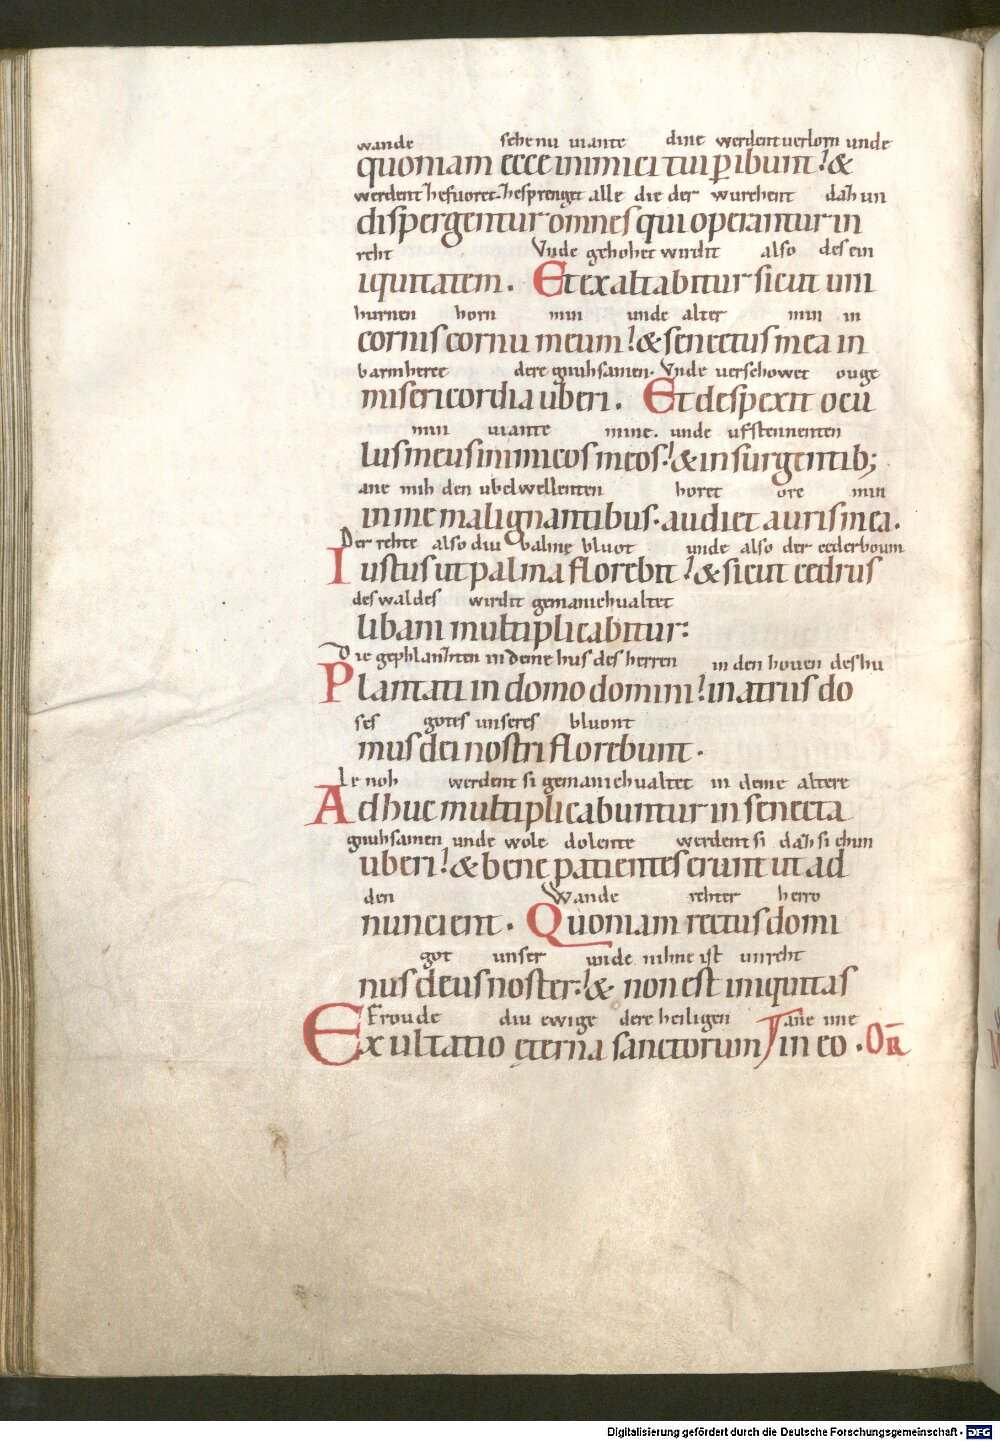 wande sehe nu viante dine werdent uerlorn unde
quoniam ecce inimici tui ꝑibunt ⁊ &
werdent hefuoret hesprenget alle die der wurchent dah un
dispergentur omnes qui operantur in
reht Vnde gehohet wirdit also des ein
iquitatem . Et exaltabitur sicut uni
hurnen horn min unde alter min in
cornis cornu meum & senectus mea in
barmherce dere gnuhsamen . Vnde uerschowet ouge
misericordia uberi . Et despexit ocu
min viante mine . unde ufstennenten
lus meus inimicos meos & insurgentib;
ane mih den ubelwellenten horet ore min
in me malignantibus . audiet auris mea .
Der rehte also diu palme bluot unde also der cederboum
Iustus ut palma florebit & sicut cedrus
des waldes wirdit gemanichualtet
libani multiplicabitur :
Die gephlanhten in deme hus des herren in den houen deshu
Plantati in domo domini in atriis do
ses gotes unseres bluont
mus dei nostri florebunt .
Le noh werdent si gemanichualtet in deme altere
Adhuc multiplicabuntur in senecta
gnuhsamen unde wole dolente werdent si dah si chun
uberi & bene patientes erunt ut ad
den Wande rehter herro
nuncient . Quoniam rectus domi
got unser unde nihne ist unreht
nus deus noster & non est iniquitas
Froude diu ewige dere heiligen ane ime
Exultatio eterna sanctorum in eo . OR
Digitalisierung gefördert durch die Deutsche Forschungsgemeinschaft - DFG